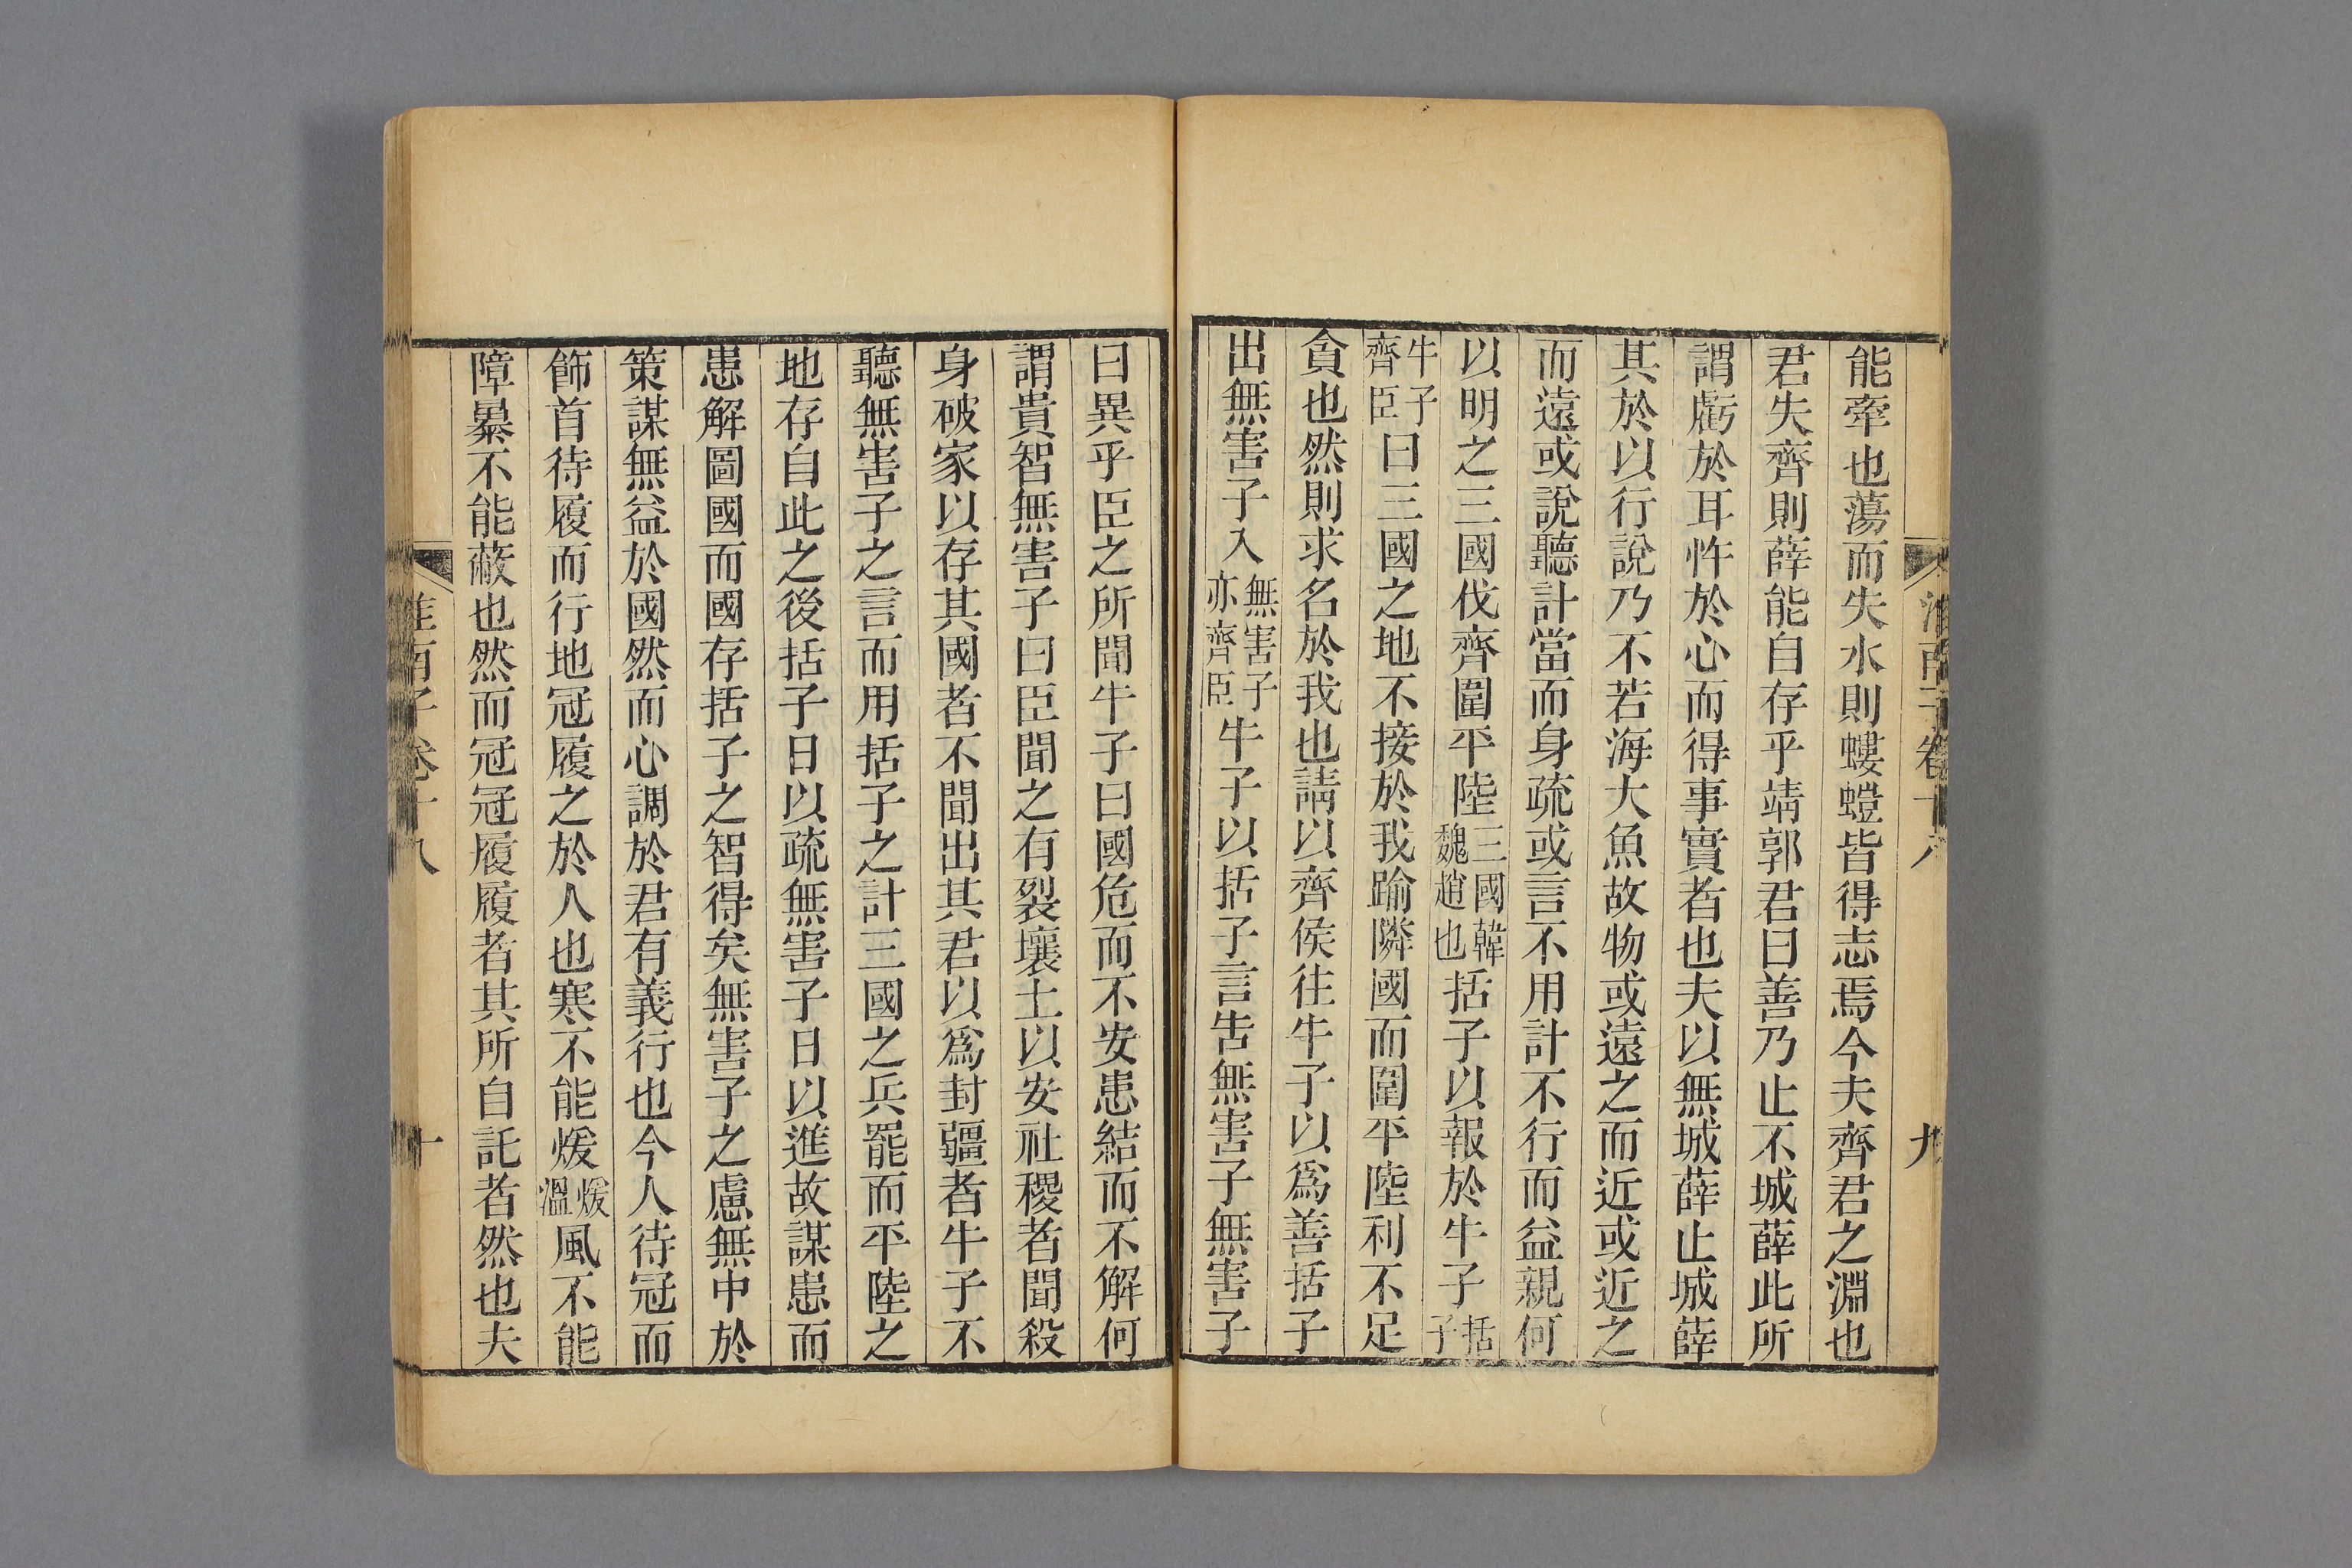 淮南子卷十八 九
能牽也蕩而失水則螻螘皆得志焉今夫齊君之淵也
君失齊則薛能自存乎靖郭君曰善乃止不城薛此所
謂虧於耳忤於心而得事實者也夫以無城薛止城薛
其於以行說乃不若海大魚故物或遠之而近或近之
而遠或說聽計當而身疏或言不用計不行而益親何
以明之三國伐齊圍平陸三國韓魏趙也括子以報於牛子括子
牛子齊臣曰三國之地不接於我踰隣國而圍平陸利不足
貪也然則求名於我也請以齊侯往牛子以爲善括子
出無害子入無害子亦齊臣牛子以括子言告無害子無害子
曰異乎臣之所聞牛子曰國危而不安患結而不解何
謂貴智無害子曰臣聞之有裂壤土以安社稷者聞殺
身破家以存其國者不聞出其君以爲封疆者牛子不
聽無害子之言而用括子之計三國之兵罷而平陸之
地存自此之後括子日以疏無害子日以進故謀患而
患解圖國而國存括子之智得矣無害子之慮無中於
策謀無益於國然而心調於君有義行也今人待冠而
飾首待履而行地冠履之於人也寒不能煖煖溫風不能
障暴不能蔽也然而冠冠履履者其所自託者然也夫
淮南子卷十八 十